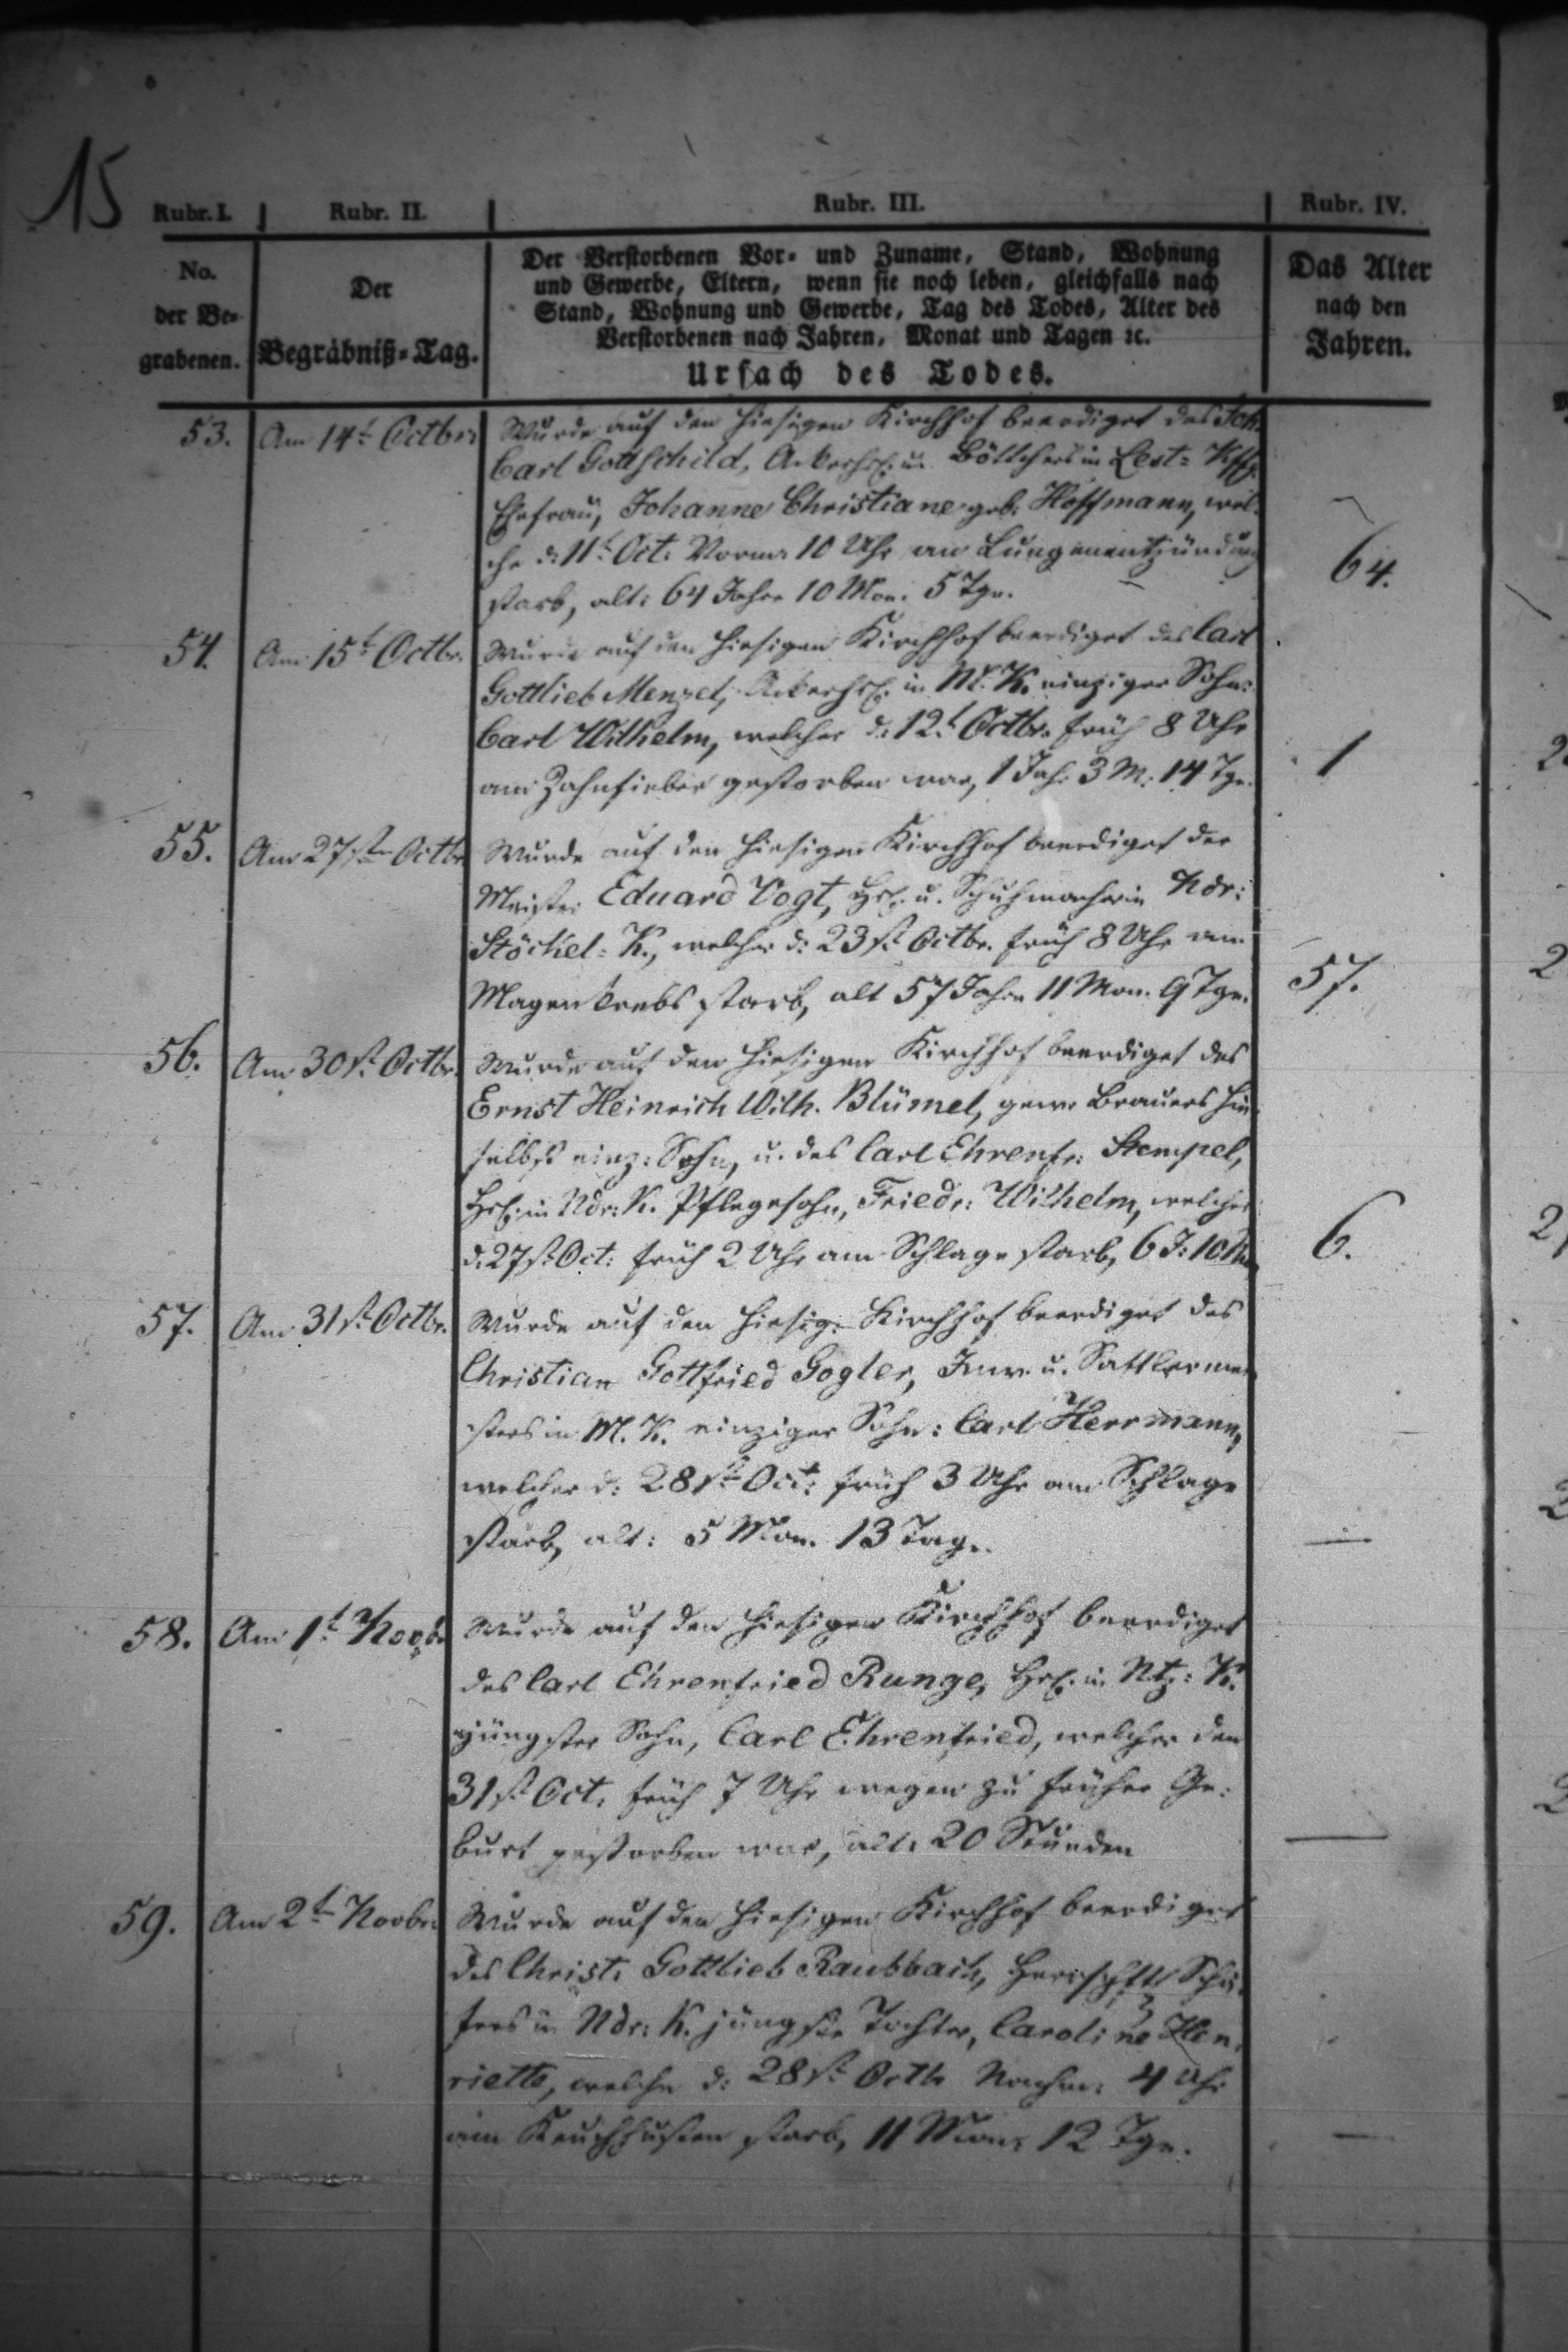 15
Rubr. I. Rubr. II. Rubr. III. Rubr. IV.
No.
der Be=
grabenen.
Der
Begräbniß=Tag.
Der Verstorbenen Vor= und Zuname, Stand, Wohnung
und Gewerbe, Eltern, wenn sie noch leben, gleichfalls nach
Stand, Wohnung und Gewerbe, Tag des Todes, Alter des
Verstorbenen nach Jahren, Monat und Tagen ꝛc.
Ursach des Todes.
Das Alter
nach den
Jahren.
53. Am 14t Octbr: Wurde auf den hiesigen Kirchhof beerdiget des Joh.
Carl Gottschild, Ackerhsl. u. Böttchers in
Ehefrau, Johanne Christiane geb. Hoffmann, wel-
che d: 11t Oct: Vorm: 10 Uhr an Lungenentzündung
starb, alt: 64 Jahre 10 Mon: 5 Tge. 64.
54. Am 15t Octbr. Wurde auf den hiesigen Kirchhof beerdiget des Carl
Gottlieb Menzel, Ackerhsl. in M. K. einziger Sohn:
Carl Wilhelm, welcher d: 12t Octbr. früh 8 Uhr
am Zahnfieber gestorben war, 1 Jahr 3 M: 14 Tge. 1
55. Am 27sten Octbr Wurde auf den hiesigen Kirchhof beerdiget der
Meister Eduard Vogt, Hsl. u. Schuhmacher in Ndr:
Stöckel=K., welcher d: 23st Octbr. früh 8 Uhr am
Magenkrebs starb, alt 57 Jahre 11 Mon. 9 Tge. 57.
56. Am 30st Octbr. Wurde auf den hiesigen Kirchhof beerdiget des
Ernst Heinrich Wilh. Blümel, gew. Brauers hie-
selbst einz: Sohn, u. des Carl Ehrenfr: Stempel,
Hsl. in Ndr: K. Pflegesohn, Friedr: Wilhelm, welcher
d: 27st Oct: früh 2 Uhr am Schlage starb, 6 J: 10 M. 6.
57. Am 31st Octbr. Wurde auf den hiesig: Kirchhof beerdiget des
Christian Gottfried Gogler, Inw. u. Sattlermei-
sters in M. K. einziger Sohn: Carl Herrmann,
welcher d: 28st Oct: früh 3 Uhr am Schlage
starb, alt: 5 Mon. 13 Tage. —
58. Am 1t Novbr Wurde auf den hiesigen Kirchhof beerdiget
des Carl Ehrenfried Runge, Hsl. in Ntz: K.
jüngster Sohn, Carl Ehrenfried, welcher den
31st Oct: früh 7 Uhr wegen zu früher Ge=
burt gestorben war, alt: 20 Stunden —
59. Am 2t Novbr: Wurde auf den hiesigen Kirchhof beerdiget
des Christ: Gottlieb Raubbach, Herrschftl Schä-
fers in Ndr: K. jüngste Tochter, Caroline Hen-
riette, welche d: 28st Octb Nachm: 4 Uhr
am Keuchhusten starb, 11 Mon: 12 Tge. —